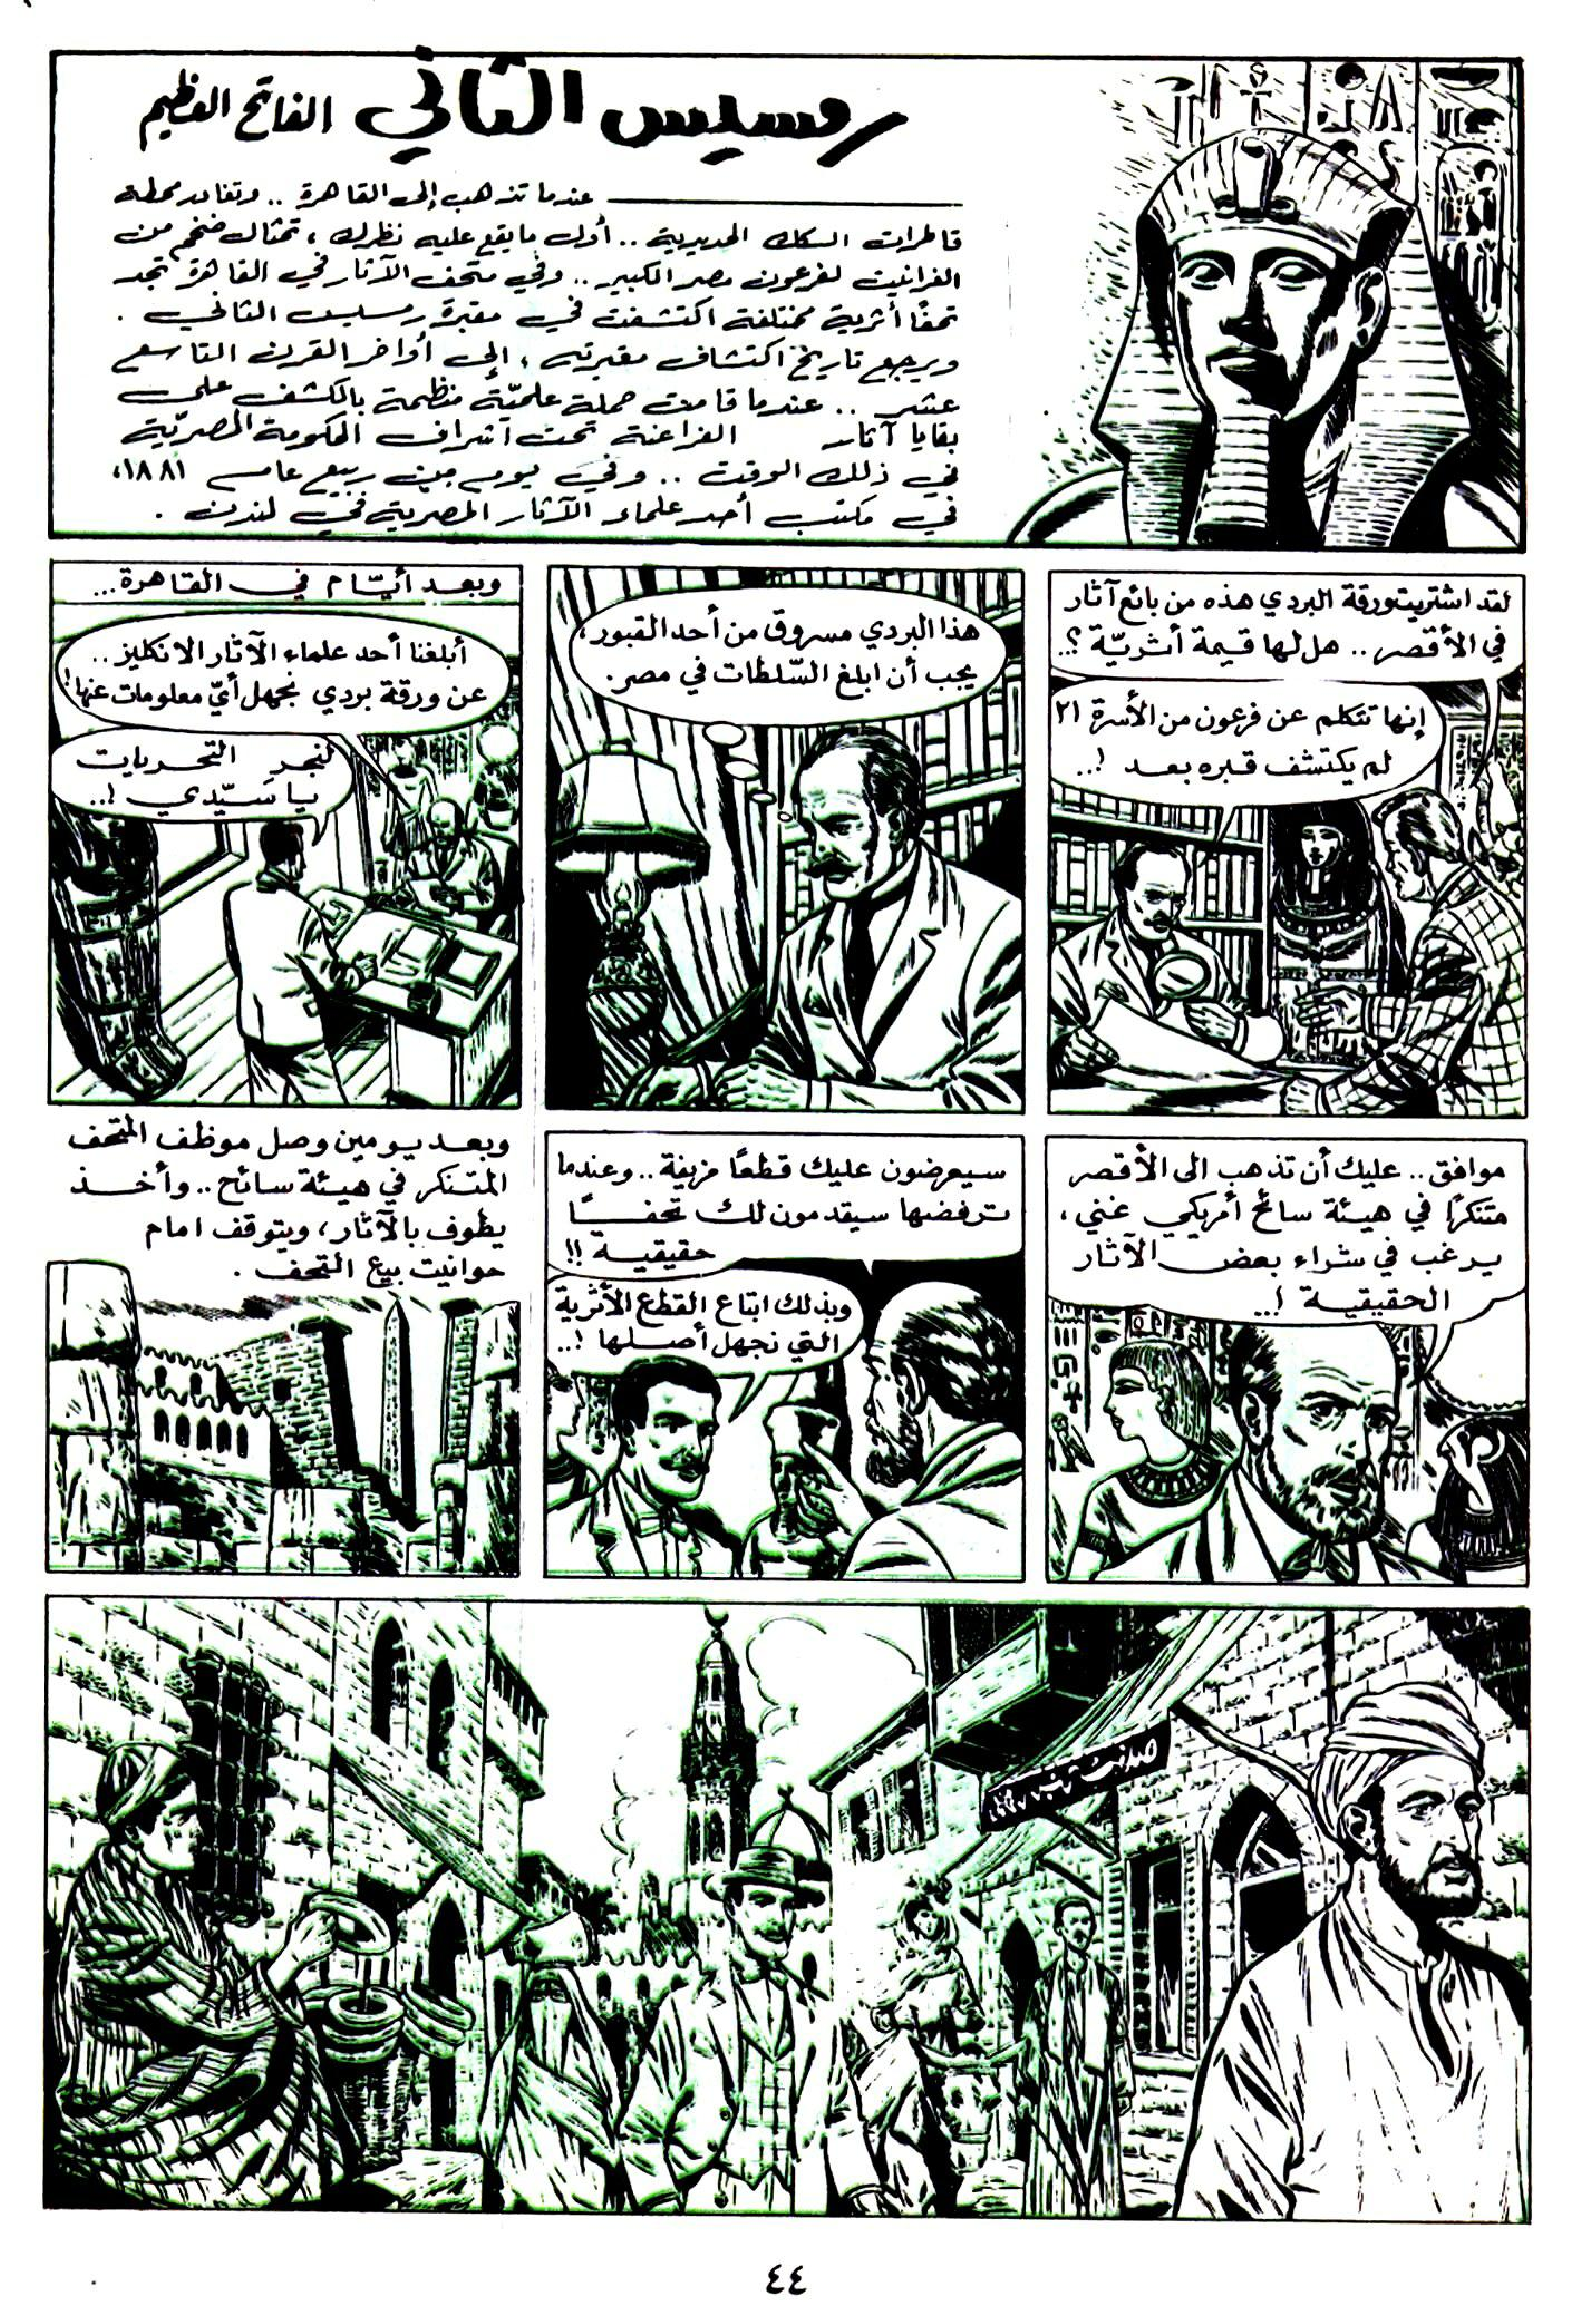 رمسيس الثاني الفاتح العظيم
عندما تذهب إلى القاهرة .. وتغادر محطة
قاطرات السكك الحديدية .. أول ما يقع عليه نظرك ، تمثال ضخم من
الغرانيت لفرعون مصر الكبير .. وفي متحف الآثار في القاهرة تجد
تحفًا أثرية مختلفة اكتشفت في مقبرة رمسيس الثاني .
ويرجع تاريخ اكتشاف مقبرته ، إلى أواخر القرن التاسع
عشر .. عندما قامت حملة علميّة منظمة بالكشف على
بقايا آثار الفراعنة تحت اشراف الحكومة المصريّة
في ذلك الوقت .. وفي يوم من ربيع عام ١٨٨١،
في مكتب أحد علماء الآثار المصرية في لندن .
لقد اشتريت ورقة البردي هذه من بائع آثار
في الأقصر .. هل لها قيمة أثريّة ؟..
إنها تتكلم عن فرعون من الأسرة ٢١
لم يكتشف قبره بعد !..
هذا البردي مسروق من أحد القبور،
يجب أن ابلغ السّلطات في مصر.
وبعد أيّام في القاهرة...
أبلغنا أحد علماء الآثار الانكليز ..
عن ورقة بردي نجهل أيّ معلومات عنها!
لنجرِ التحريات
يا سيّدي !..
موافق .. عليك أن تذهب الى الأقصر
متنكرًا في هيئة سائح أمريكي غني ،
يرغب في شراء بعض الآثار
الحقيقية !..
سيعرضون عليك قطعًا مزيفة .. وعندما
ترفضها سيقدمون لك تحفًا
حقيقية !!
وبذلك ابتاع القطع الأثرية
التي نجهل أصلها !..
وبعد يومين وصل موظف المتحف
المتنكر في هيئة سائح .. وأخذ
يطوف بالآثار ، ويتوقف امام
حوانيت بيع التحف .
٤٤